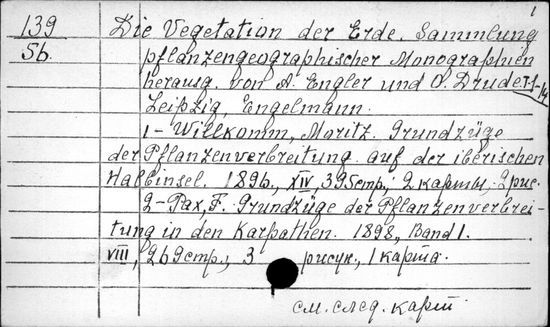 1
139 Die Vegetation der Erde. Sammlung
5b. pflanzengeographischer Monographien
herausg. von A. Engler und O. Drude. T-1-
Leipzig, Engelmann.
1- Willkomm, Moritz. Grundzüge
der Pflanzenverbreitung auf der iberischen
Halbinsel. 1896, XIV, 395стр., 2 карты. 2рис.
2-Pax, F. Grundzüge der Pflanzenverbrei-
tung in den Karpathen. 1898, Band 1.
VIII, 269стр., 3 рисун., 1 карта.
см. след. карт